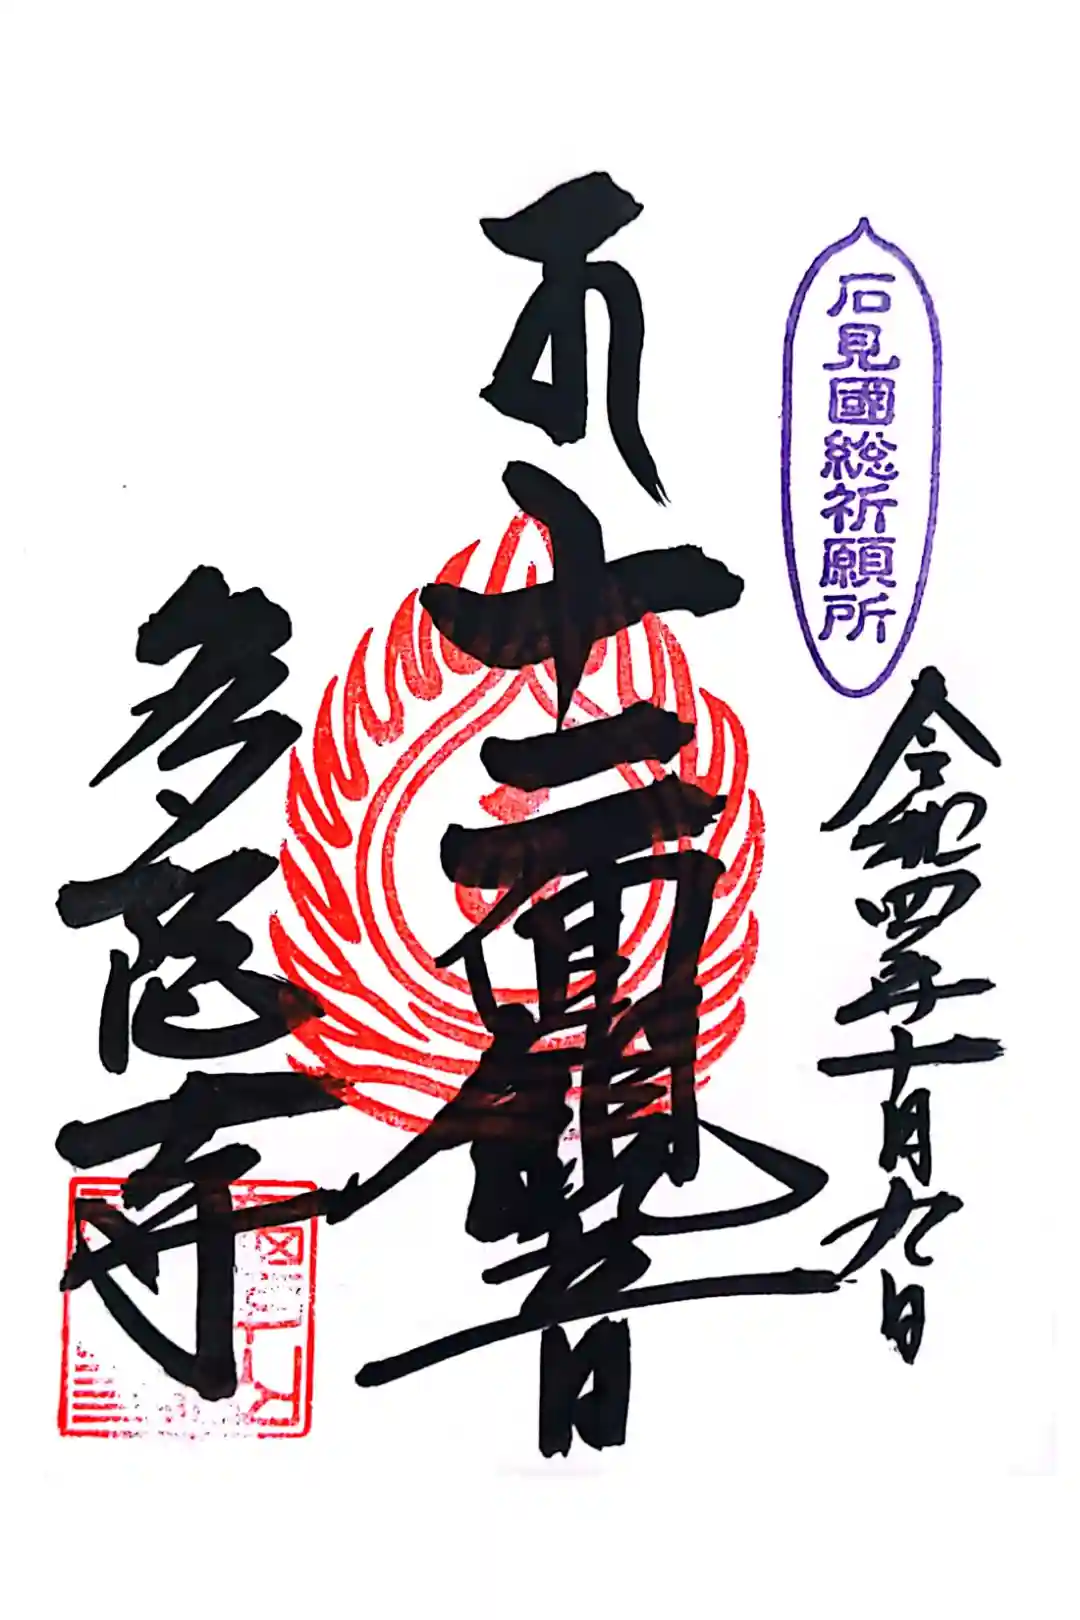 石見國総祈願所
令和四年十月九日
十一面觀音
多陀寺